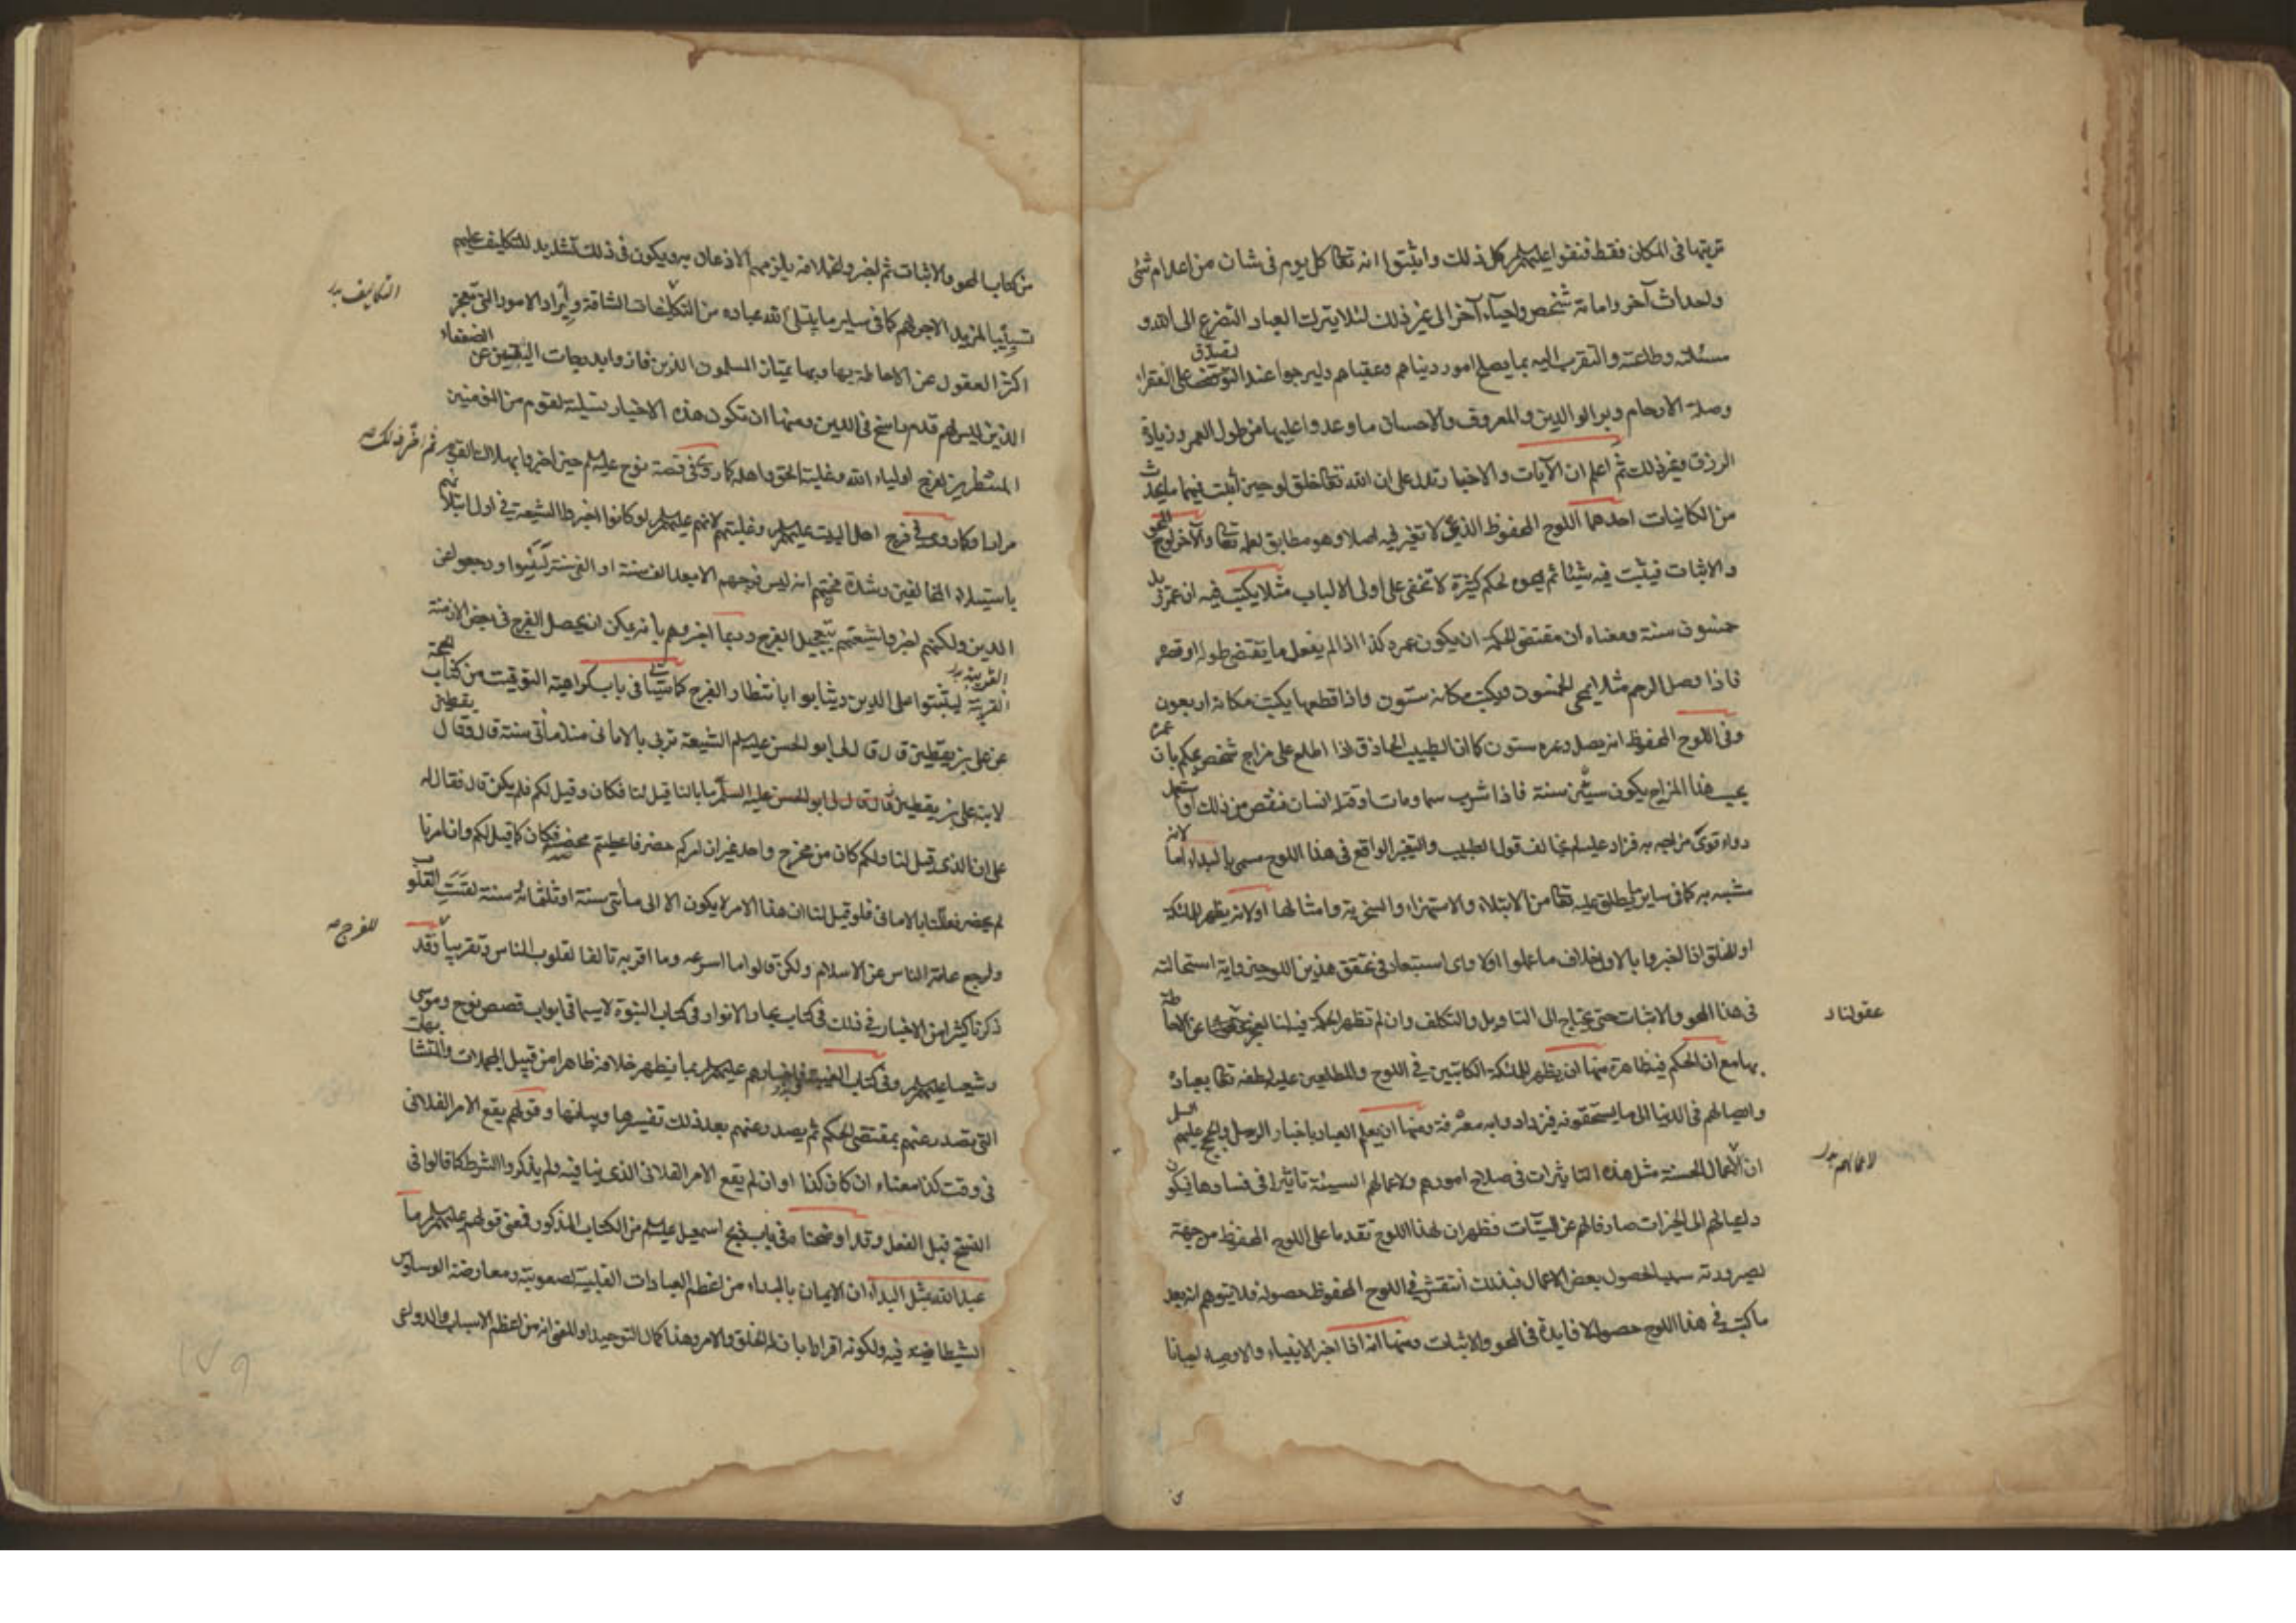 ترتبها في المكان فقط فنفوا عليهم السلم كل ذلك واثبتوا انه تعا كل يوم في شان من اعدام شئ
واحداث آخر واماتة شخص واحياء آخر الى غير ذلك لئلا يترك العباد التضرع الى الله و
مسئلته وطاعته والتقرب اليه بما يصلح امور دنياهم وعقباهم وليرجوا عند التصدق على الفقراء
وصلة الارحام وبر الوالدين والمعروف والاحسان ما وعدوا عليها من طول العمر وزيادة
الرزق وغير ذلك ثم اعلم ان الآيات والاخبار تدل على ان الله تعا خلق لوحين اثبت فيهما ما يحدث
من الكائنات احدهما اللوح المحفوظ الذي لا تغير فيه اصلا وهو مطابق لعلمه تعا والآخر لوح المحو
والاثبات فيثبت فيه شيئا ثم يمحوه لحكم كثيرة لا تخفى على اولى الالباب مثلا يكتب فيه ان عمر زيد
خمسون سنة ومعناه ان مقتضى الحكمة ان يكون عمره كذا اذا لم يفعل ما يقتضى طوله او قصره
فاذا وصل الرحم مثلا يمحى الخمسون ويكتب مكانه ستون واذا قطعها يكتب مكانه اربعون
وفي اللوح المحفوظ انه يصل وعمره ستون كما ان الطبيب الحاذق اذا اطلع على مزاج شخص يحكم بان عمره
بحسب هذا المزاج يكون ستين سنة فاذا شرب سما ومات او قتله انسان فنقص من ذلك او استعمل
دواء قوى مزاجه به فزاد عليه لم يخالف قول الطبيب والتغير الواقع في هذا اللوح مسمى بالبداء اما لانه
مشبه به كما في ساير ما يطلق عليه تعا من الابتلاء والاستهزاء والسخرية وامثالها او لانه يظهر للملئكة
او للخلق اذا اخبروا بالاول خلاف ما علموا اولا واى استبعاد في تحقق هذين اللوحين واية استحالة
في هذا المحو والاثبات حتى يحتاج الى التاويل والتكلف وان لم تظهر الحكمة فيه لنا لعجز عقولنا عن الاحاطة
عقولنا د
بها مع ان الحكم فيه ظاهرة منها ان يظهر للملئكة الكاتبين في اللوح والمطلعين عليه لطفه تعا بعباده
وايصالهم في الدنيا الى ما يستحقونه فيزدادوا به معرفة ومنها ان يعلم العباد باخبار الرسل والحجج عليهم السلم
ان لاعمالهم الحسنة مثل هذه التاثيرات في صلاح امورهم ولاعمالهم السيئة تاثيرا في فسادها فيكون
لاعمالهم بدر
داعيا لهم الى الخيرات صارفا لهم عن السيئات فظهر ان لهذا اللوح تقدما على اللوح المحفوظ من جهة
لصيرورته سببا لحصول بعض الاعمال فبذلك انتقش في اللوح المحفوظ حصوله فلا يتوهم انه بعد
ما كتب في هذا اللوح حصوله لا فايدة في المحو والاثبات ومنها انه اذا اخبر الانبياء والاوصياء احيانا
من كتاب المحو والاثبات ثم اخبروا بخلافه يلزمهم الاذعان به ويكون في ذلك تشديد للتكليف عليهم
تسبيبا لمزيد الاجر لهم كما في ساير ما يبتلى الله عباده من التكليفات الشاقة وايراد الامور التي تعجز
التكاليف بدر
اكثر العقول عن الاحاطة بها وبها يمتاز المسلمون الذين فازوا بدرجات اليقين عن الضعفاء
الذين ليس لهم قدم راسخ في الدين ومنها ان تكون هذه الاخبار تسلية لقوم من المؤمنين
المنتظرين لفرج اولياء الله وغلبة الحق واهله كما روى في قصة نوح عليه السلم حين اخبروا بهلاك القوم ثم اخر ذلك
مرارا وكما روى في فرج اهل البيت عليهم السلم وغلبتهم لانهم عليهم السلم لو كانوا اخبروا الشيعة في اول ابتلائهم
باستيلاء المخالفين وشدة محنتهم انه ليس فرجهم الا بعد الف سنة او الفي سنة ليئسوا ورجعوا عن
الدين ولكنهم اخبروا شيعتهم بتعجيل الفرج وربما اخبروهم بانه يمكن ان يحصل الفرج في بعض الازمنة
القريبة ليثبتوا على الدين ويثابوا بانتظار الفرج كما سيأتي في باب كراهية التوقيت من كتاب الحجة
القريبة بدر
عن على بن يقطين قال قال لى ابو الحسن عليه السلم الشيعة تربى بالاماني منذ مأتى سنة قال وقال يقطين
لابنه على بن يقطين قال قال لى ابو الحسن عليه السلم ما بالنا قيل لنا فكان وقيل لكم فلم يكن قال فقال له
على ان الذى قيل لنا ولكم كان من مخرج واحد غير ان امركم حضر فاعطيتم محضه فكان كما قيل لكم وان امرنا
لم يحضر فعللنا بالاماني فلو قيل لنا ان هذا الامر لا يكون الا الى مأتى سنة او ثلثمائة سنة لقست القلوب
ولرجع عامة الناس عن الاسلام ولكن قالوا ما اسرعه وما اقربه تالفا لقلوب الناس وتقريبا وقد
للفرج صح
ذكرنا كثيرا من الاخبار في ذلك في كتاب بحار الانوار في كتاب النبوة لاسيما في ابواب قصص نوح وموسى
وشعيا عليهم السلم وفي كتاب الغيبة فاخبارهم عليهم السلم بما يظهر خلافه ظاهرا من قبيل المجملات والمتشابهات
التي تصدر عنهم بمقتضى الحكم ثم يصدر عنهم بعد ذلك تفسيرها وبيانها وقولهم يقع الامر الفلاني
في وقت كذا معناه ان كان كذا او ان لم يقع الامر الفلاني الذى ينافيه ولم يذكروا الشرط كما قالوا في
النسخ قبل الفعل وقد اوضحنا في باب ذبح اسمعيل عليه السلم من الكتاب المذكور فمعنى قولهم عليهم السلم ما
عبد الله بمثل البداء ان الايمان بالبداء من اعظم العبادات القلبية لصعوبته ومعارضة الوساوس
الشيطانية فيه ولكونه اقرارا بان له الخلق والامر وهذا كمال التوحيد او المعنى انه من اعظم الاسباب والدواعى